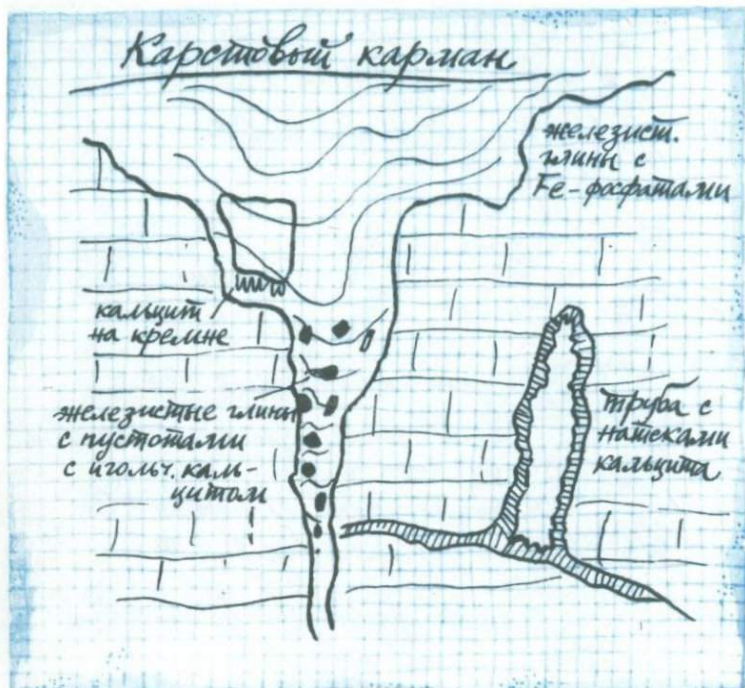 Карстовый карман
железист.
глины с
Fe-фосфатами
кальцит
на кремне
железистые глины
с пустотами
с игольч. каль-
цитом
труба с
натеками
кальцита